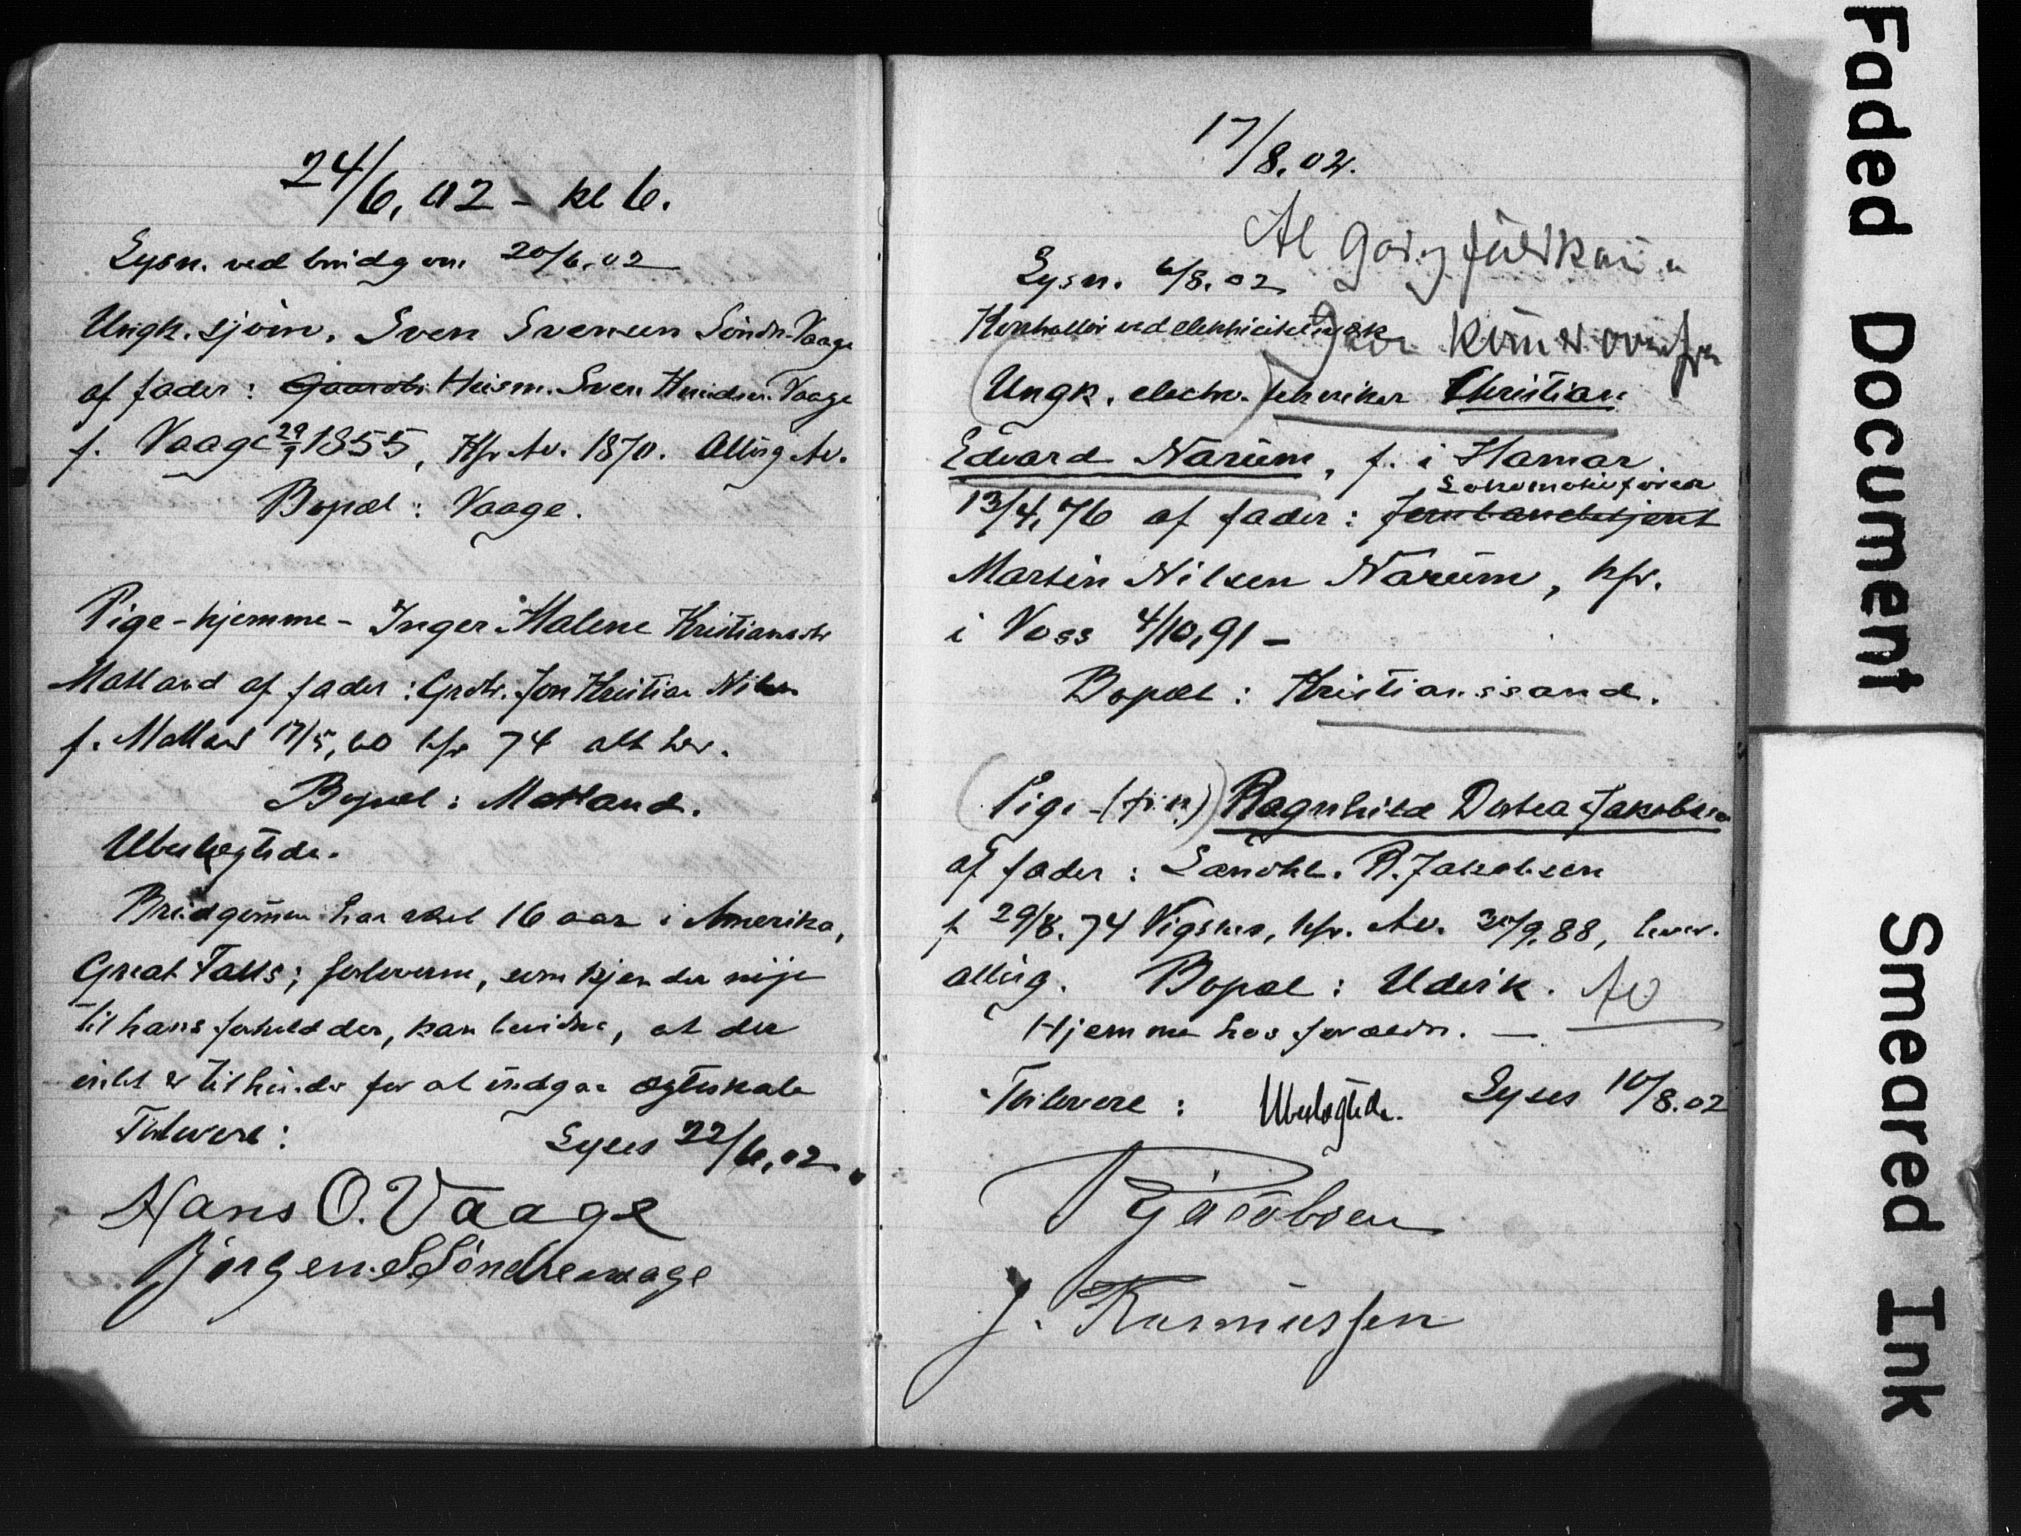 24/6, 02 - kl 6.
Lysn. ved brudgom 20/6, 02
Ungk. sjøm. Sven Svensen Søndre-Vaage
af fader: Gaardbr. Husm. Sven Vaage
f. Vaage 29/1 1855, Kfr Av. 1870. Altúg Av.
Bopæl: Vaage.
Pige - hjemme - Inger Malene Kristiansdtr
Matland af fader: Grdbr. Jon Kristian Nilsen
f. Matland 17/5, 60 kfr 74 alt her.
Bopæl: Matland.
Ubeslægtede.
Brúdgommen har været 16 aar i Amerika,
Great Falls; forloverne, som kjender nøje
til hans forhold der, kan bevidne, at der
intet er til hinder for at indgaa ægteskab
Forlovere: Lyses 22/6, 02.
Hans O. Vaage
Børgen S Søndrevaage
17/8. 02.
Al
Lysn. 6/8. 02
Kontrollør ved elektricitetsverk kúm
Ungk. electro. tekniker Christian
Edvard Narúm, f. i Hamar.
Lokomotivfører
13/4, 76 af fader: Jernbanebetjent
Martin Nilsen Narúm, kfr.
i Voss 4/10, 91 -
Bopæl: Kristianssand.
Pige - Ragnhild Dortea Jakobsen
af fader: Landhl. R. Jakobsen
f 29/8. 74 Vigsnes, kfr. Av. 30/9, 88,
altúg. Bopæl: Udvik. Av
Hjemme hos forældr. -
Forlovere: Ubeslægtede. Lyses 10/8. 02
R Jacobsen
J. Rasmússen
Faded Document
Smeared Ink